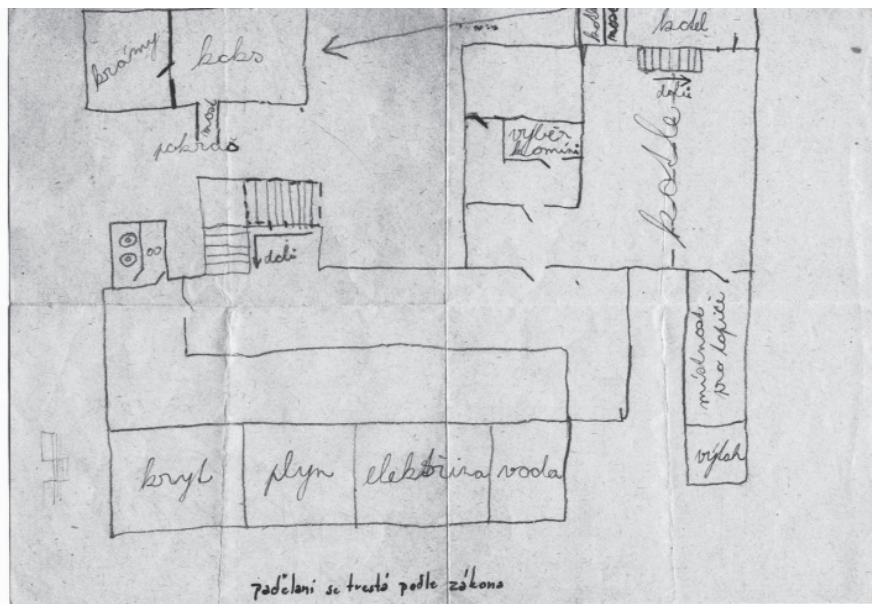 brámy
koks
most
kotel
dolů
výběr
komínů
kotle
dolů
místnost
pro topiče
výtah
kryt
plyn
elektřina
voda
padělaní se trestá podle zákona